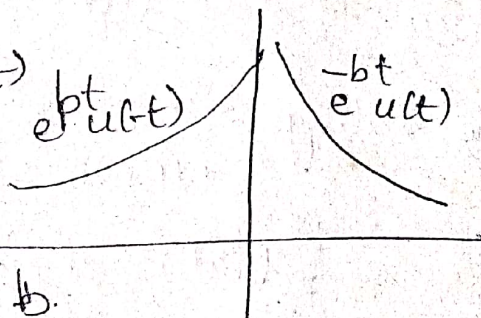 e^{bt} u(-t)
e^{-bt} u(t)
b.